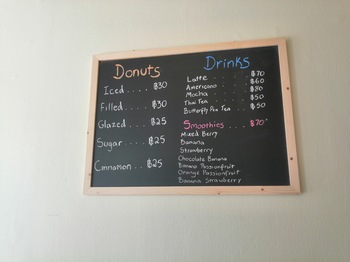 Donuts
Iced.... ฿30
Filled... ฿30
Glazed... ฿25
Sugar... ฿25
Cinnamon.. ฿25
Drinks
Latte..... ฿70
Americano.... ฿60
Mocha..... ฿80
Thai Tea.... ฿50
Butterfly Pea Tea.. ฿50
Smoothies... ฿70
Mixed Berry
Banana
Strawberry
Chocolate Banana
Banana Passionfruit
Orange Passionfruit
Banana Strawberry